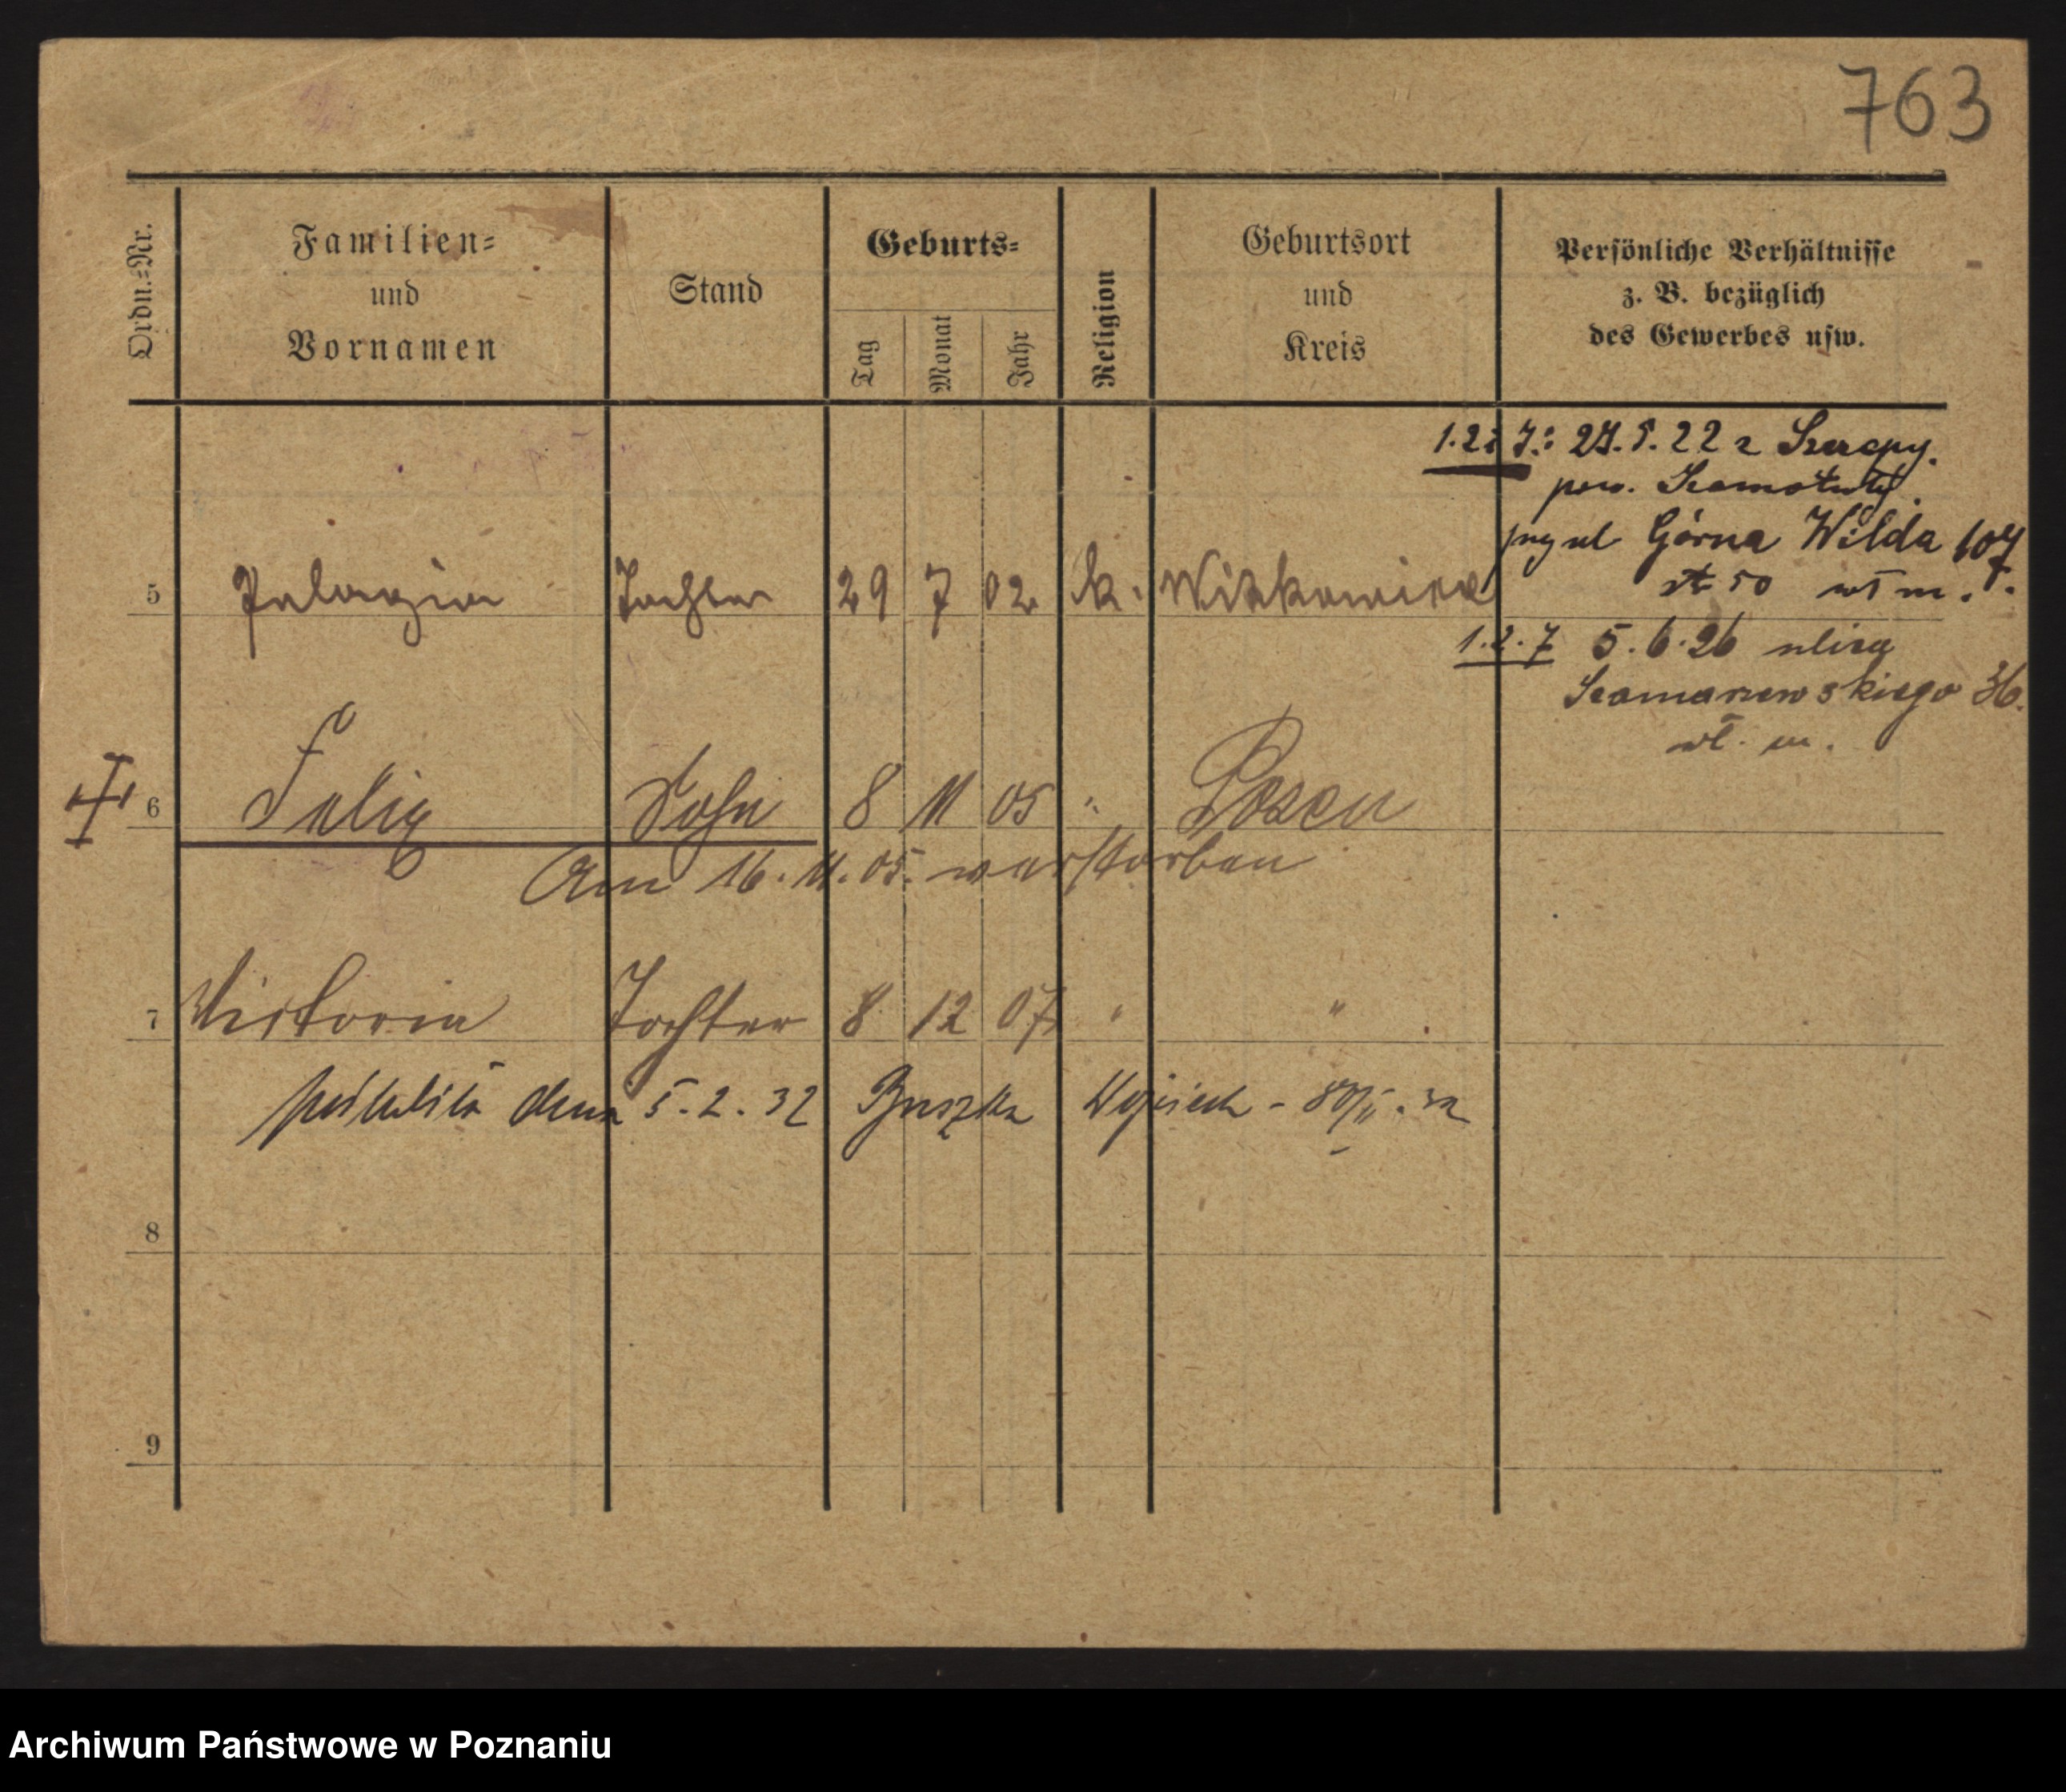 763
Ordn.-Nr.
Familien-
und
Vornamen
Stand
Geburts-
Tag
Monat
Jahr
Religion
Geburtsort
und
Kreis
Persönliche Verhältnisse
z. B. bezüglich
des Gewerbes usw.
1.2 i 7.: 27.5.22 z
pow. Szamotuły.
Górna Wilda 107
50 wł m.
5 Pelagia Tochter 29 7 02 k.
1.2.7 5.6.26 ulica
Szamarzewskiego 36.
wł. m.
6 Felix Sohn 8 11 05 " Posen
Am 16.11.05. verstorben
7 Victoria Tochter 8 12 07 " "
poślubiła dnia 5.2.32 Wojciech
8
9
Archiwum Państwowe w Poznaniu